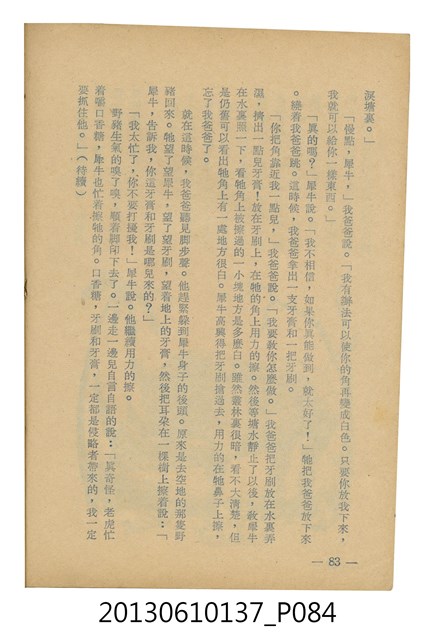 淚塘裏。」
「慢點，犀牛，」我爸爸說。「我有辦法可以使你的角再變成白色。只要你放我下來，
我就可以給你一樣東西。」
「眞的嗎？」犀牛說。「我不相信，如果你眞能做到，就太好了！」牠把我爸爸放下來
，繞着我爸爸跳。這時候，我爸爸拿出一支牙膏和一把牙刷。
「你把角靠近我一點兒，」我爸爸說。「我要教你怎麼做。」我爸爸把牙刷放在水裏弄
濕，擠出一點兒牙膏！放在牙刷上，在牠的角上用力的擦。然後等塘水靜止了以後，敎犀牛
在水裏照一下，看牠角上被擦過的一小塊地方是多麼白。雖然叢林裏很暗，看不大清楚，但
是仍舊可以看出牠角上有一處地方很白。犀牛高興得把牙刷搶過去，用力的在牠鼻子上擦，
忘了我爸爸了。
就在這時候，我爸爸聽見脚步聲。他趕緊躲到犀牛身子的後頭。原來是去空地的那隻野
豬回來。牠望了望犀牛，望了望牙刷，望着地上的牙膏，然後把耳朵在一棵樹上擦着說：「
犀牛，告訴我，你這牙膏和牙刷是哪兒來的？」
「我太忙了，你不要打擾我！」犀牛說。他繼續用力的擦。
野豬生氣的嗅了嗅，順着脚印下去了。一邊走一邊兒自言自語的說：「眞奇怪，老虎忙
着嚼口香糖，犀牛也忙着擦牠的角。口香糖，牙刷和牙膏，一定都是侵略者帶來的，我一定
要抓住他。」（待續）
— 83 —
20130610137_P084